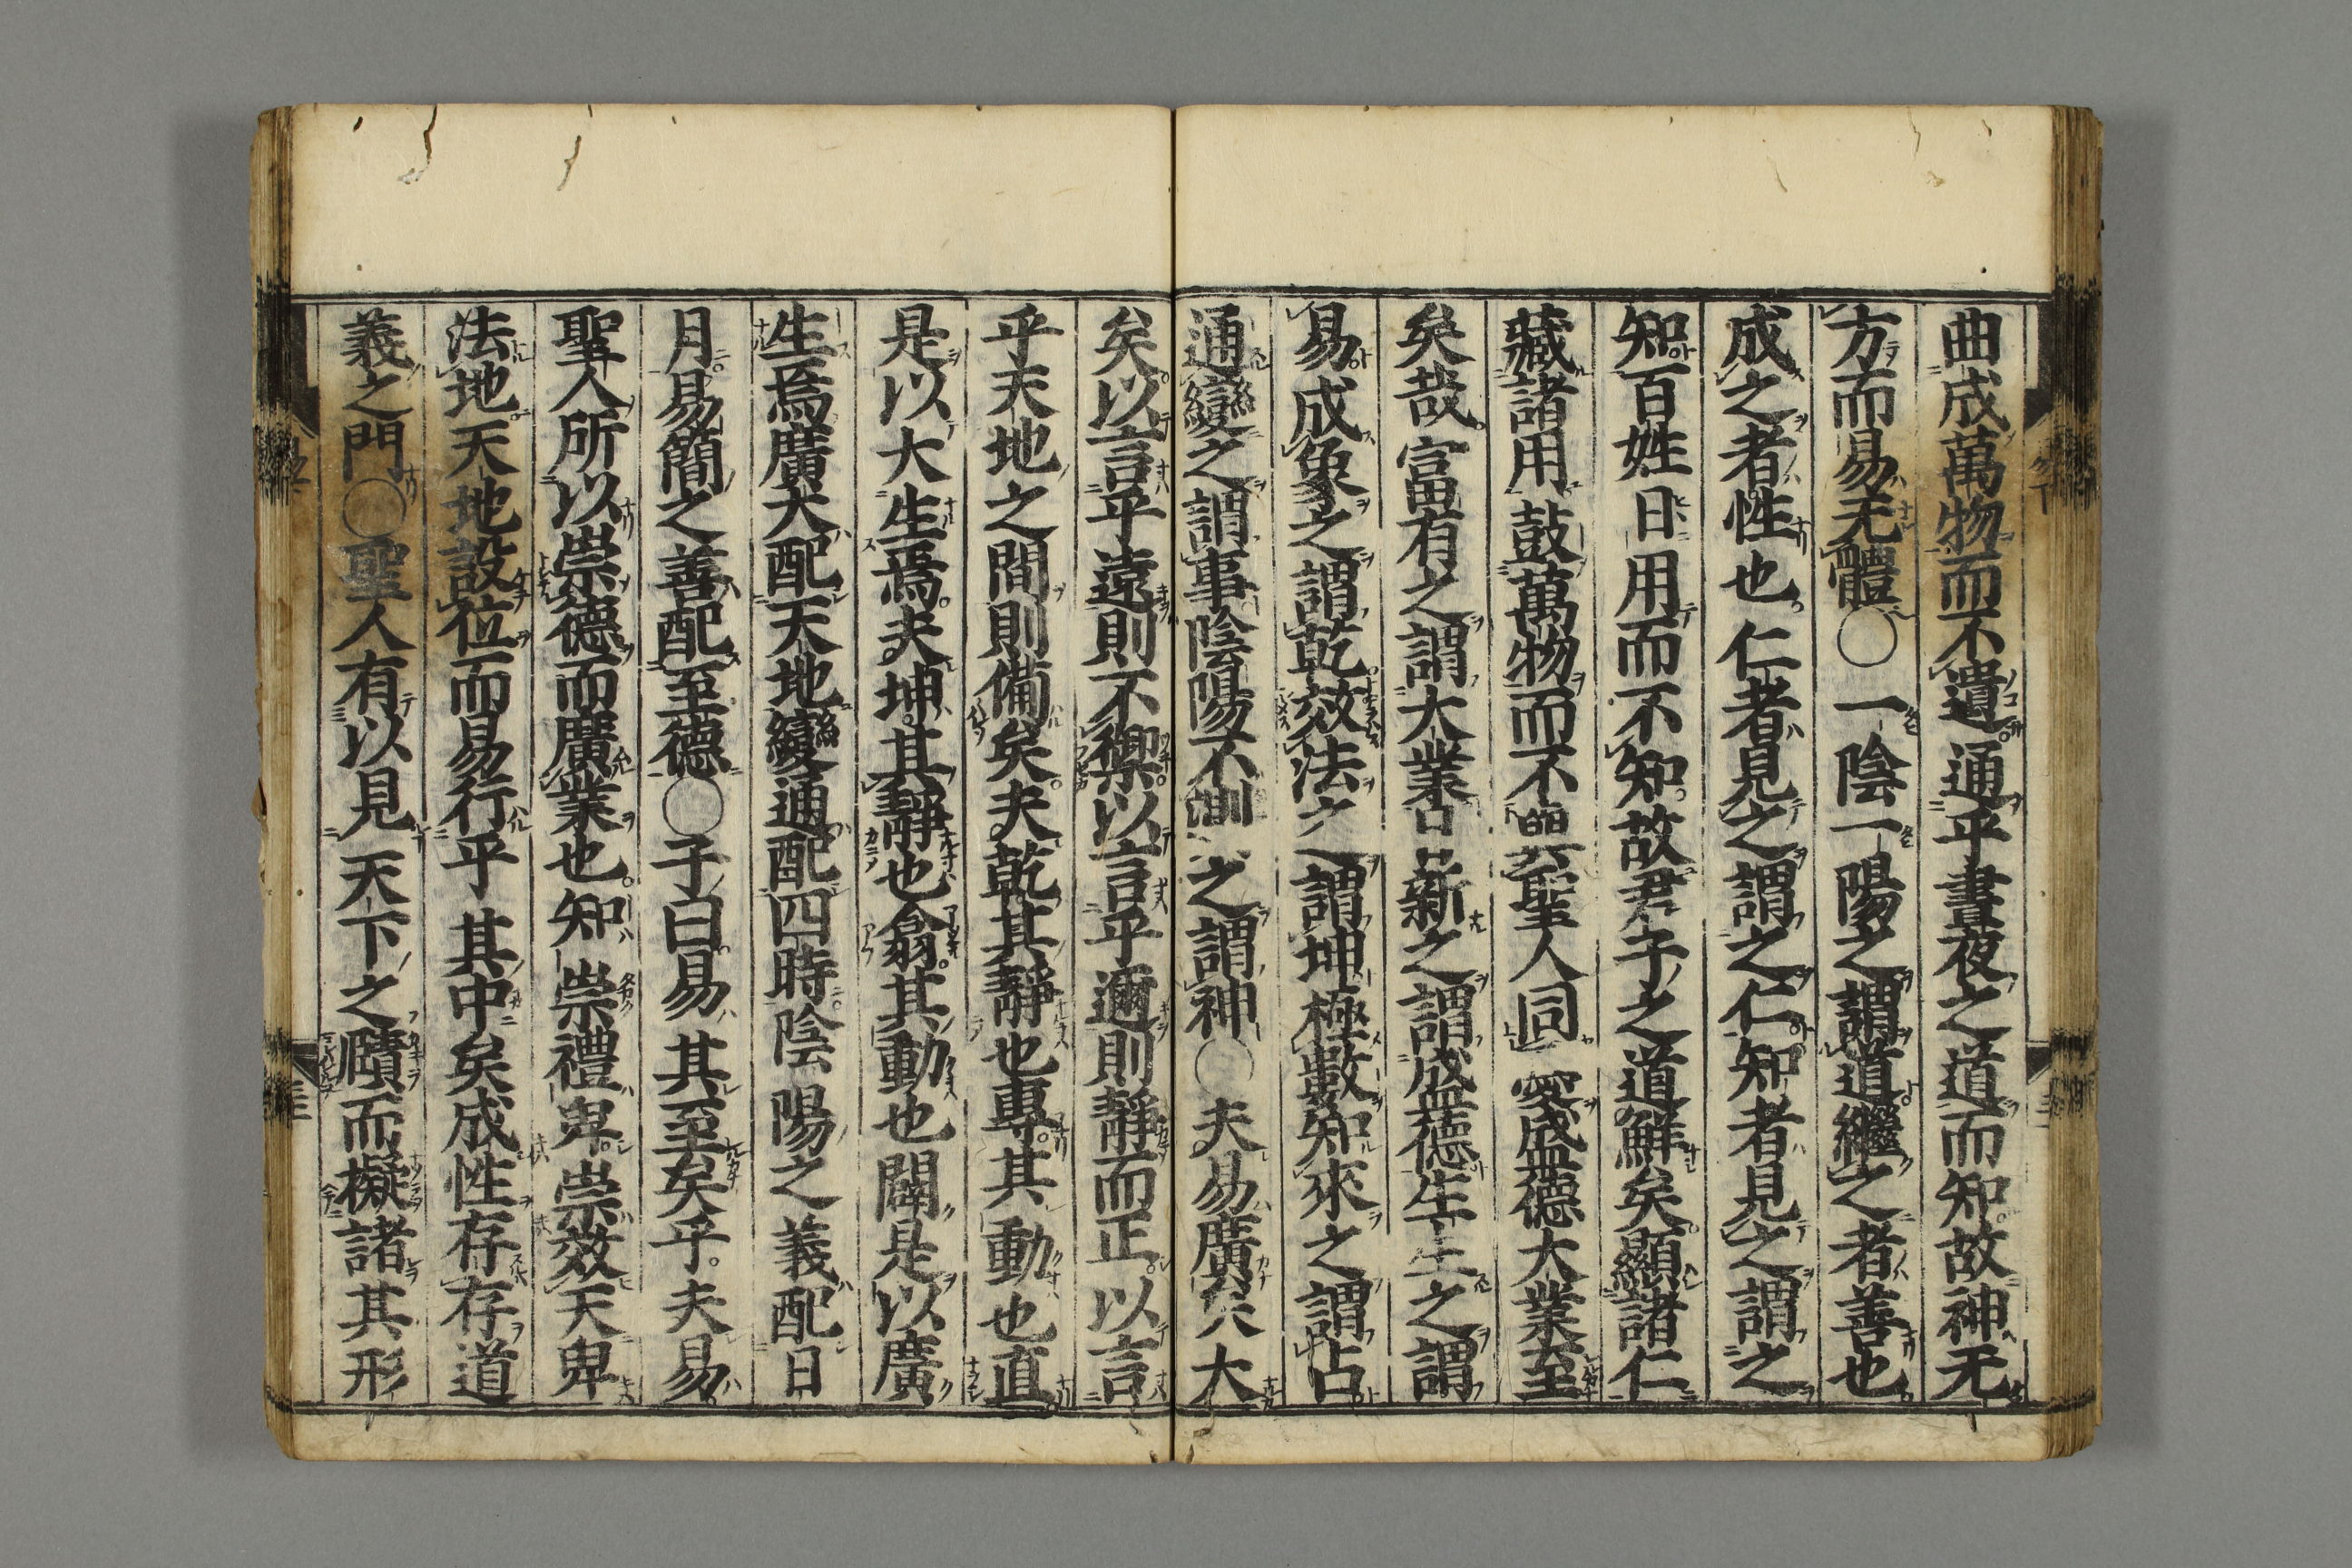 曲成萬物而不遺通乎晝夜之道而知故神无
方而易无體○一陰一陽之謂道繼之者善也
成之者性也仁者見之謂之仁知者見之謂之
知百姓日用而不知故君子之道鮮矣顯諸仁
藏諸用鼓萬物而不與聖人同憂盛德大業至
矣哉富有之謂大業日新之謂盛德生生之謂
易成象之謂乾效法之謂坤極數知來之謂占
通變之謂事陰陽不測之謂神○夫易廣矣大
矣以言乎遠則不禦以言乎邇則靜而正以言
乎天地之間則備矣夫乾其靜也專其動也直
是以大生焉夫坤其靜也翕其動也闢是以廣
生焉廣大配天地變通配四時陰陽之義配日
月易簡之善配至德○子曰易其至矣乎夫易
聖人所以崇德而廣業也知崇禮卑崇效天卑
法地天地設位而易行乎其中矣成性存存道
義之門○聖人有以見天下之賾而擬諸其形